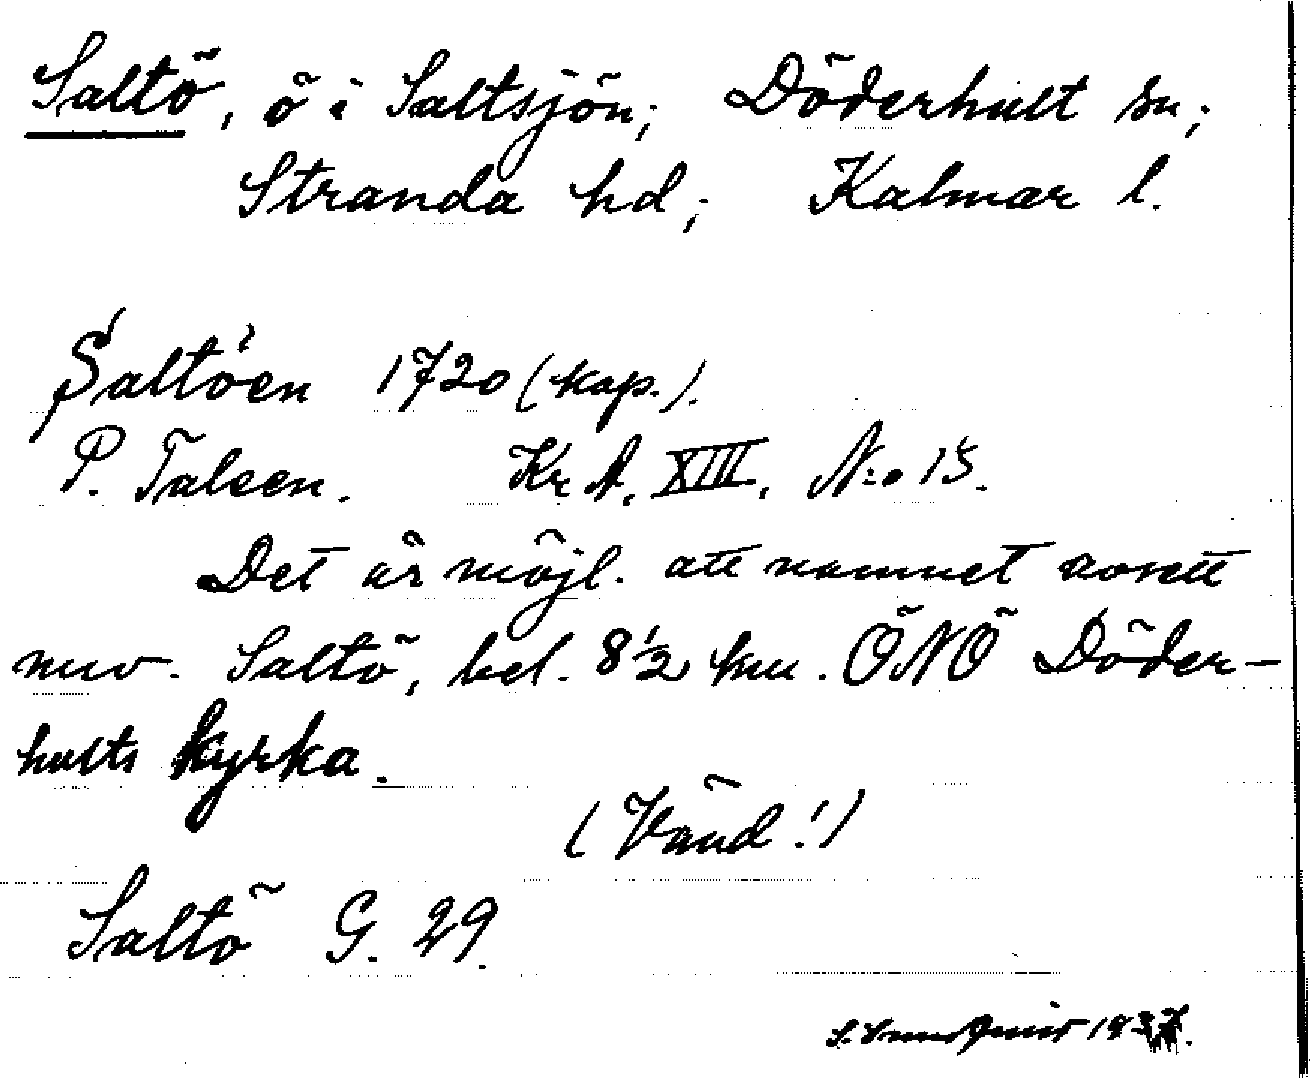 Saltö, ö i Saltsjön; Döderhult sn;
Stranda hd; Kalmar l.
Saltöen 1720 (kop.).
P. Talsen. Kr A. XIII. N:o 15.
Det är möjl. att namnet avsett
nuv. Saltö, bel. 8½ km. ÖNÖ Döder-
hults kyrka.
(Vänd!)
Saltö G. 29.
S. 1937.